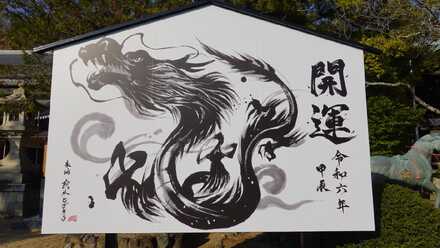 開運
令和六年
甲辰